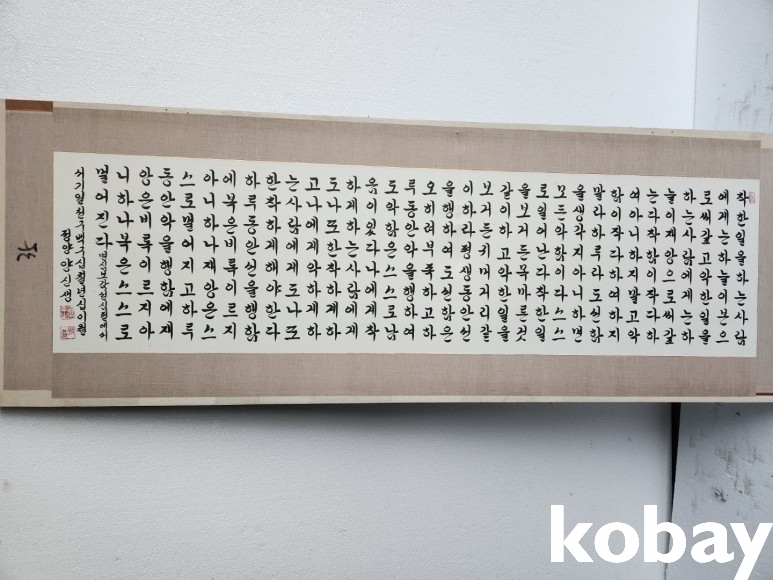 착한일을하는사람
에게는하늘이복으
로써갚고악한일을
하는사람에게는하
늘이재앙으로써갚
는다착함이작다하
여아니하지말고악
함이작다하여하지
말라하루라도선함
을생각지아니하면
모든악함이다스스
로일어난다착한일
을보거든목마른것
같이하고악한일을
보거든귀머거리같
이하라평생동안선
을행하여도선함은
오히려부족하고하
루동안악을행하여
도악함은스스로남
음이있다나에게착
하게하는사람에게
도나또한착하게하
고나에게악하게하
는사람에게도나또
한착하게해야한다
하루동안선을행함
에복은비록이르지
아니하나재앙은스
스로멀어지고하루
동안악을행함에재
앙은비록이르지아
니하나복은스스로
멀어진다 명심보감
서기일천구백구십칠년십이월
정양 안신생
35
kobay